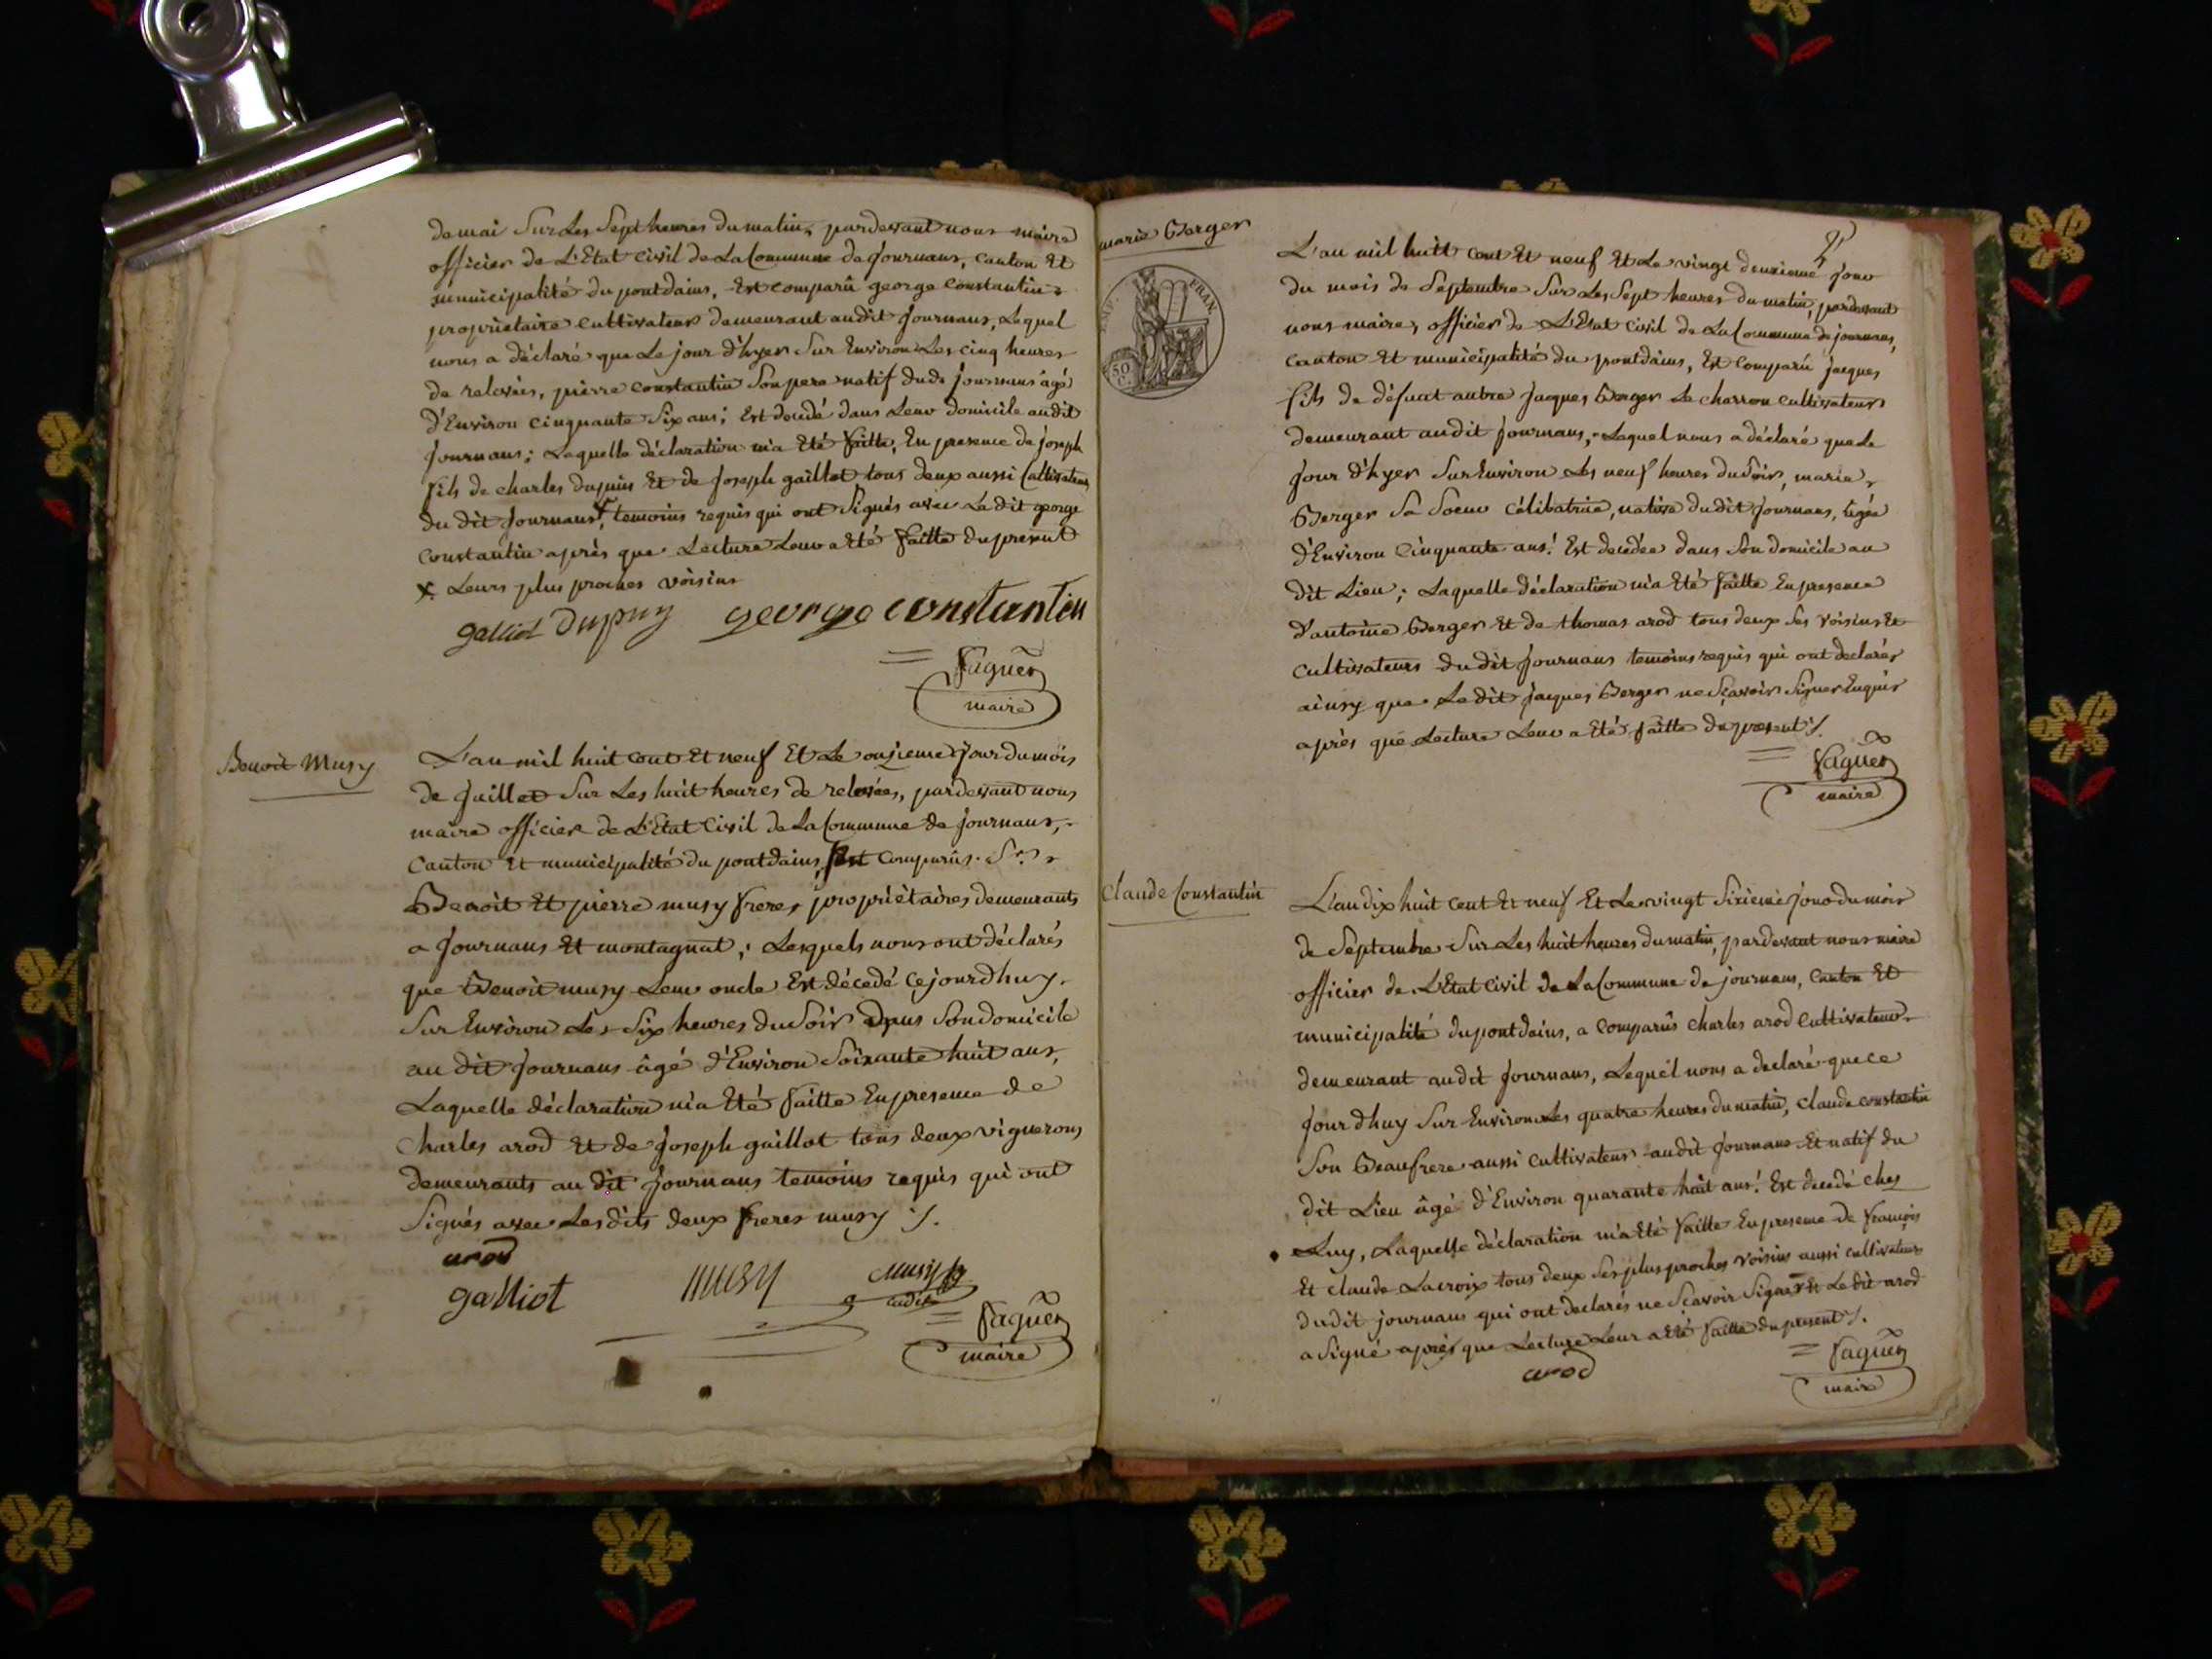 de mai Sur Les Sept heures du matin, pardevant nous maire
officier de L'Etat Civil de La Commune de Journans, Canton Et
municipalité du pontdains, Est comparû george Constantin
propriétaire cultivateur demeurant audit Journans, Lequel
nous a déclaré que Le jour d'hyer Sur Environ Les cinq heures
de relevées, pierre constantin Son pere natif dud. Journans âgé
d'Environ cinquante Six ans; Est decedé dans Leur domicile audit
Journans; Laquelle déclaration m'a Eté faitte, En presence de joseph
fils de charles dupuis Et de Joseph gaillot tous deux aussi Cultivateurs
du dit Journans x, temoins requis qui ont Signés avec Le dit george
constantin après que Lecture Leur a Eté faitte du present
x Leurs plus proches voisins
galliot Dupuy george constantin
faguer
maire
Benoit Musy
L'an mil huit cent Et neuf Et Le onzieme jour du mois
de Juillet Sur Les huit heures de relevées, pardevant nous
maire officier de L'Etat Civil de La Commune de Journans,
Canton Et municipalité du pontdains, Est comparûs. Srs
Benoit Et pierre musy freres propriétaires demeurants
a Journans Et montagnat; Lesquels nous ont déclarés
que Benoit musy Leur oncle Est décedé cejourdhuy
Sur Environ Les Six heures du Soir dans Son domicile
au dit Journans âgé d'Environ Soixante huit ans,
Laquelle déclaration m'a Eté faitte En presence de
Charles arod Et de Joseph gaillot tous deux vignerons
demeurants au dit Journans temoins requis qui ont
Signés avec Lesdits deux freres musy ./.
arod
galliot musy musy
faguer
maire
marie Berger
EMP. FRAN.
50
L'an mil huit cent Et neuf Et Le vingt deuxieme jour
du mois de Septembre Sur Les Sept heures du matin, pardevant
nous maire, officier de L'Etat Civil de La Commune de journans,
Canton Et municipalité du pontdains, Est Comparû jacques
fils de défunt autre Jacques Berger Le charron cultivateur
demeurant audit Journans, Lequel nous a déclaré que Le
jour d'hyer Sur Environ Les neuf heures du Soir, marie
Berger Sa Soeur Célibatrice, native dudit Journans, âgée
d'Environ Cinquante ans! Est decedée dans Son domicile au
dit Lieu; Laquelle déclaration m'a Eté faitte En presence
d'antoine Berger Et de thomas arod tous deux Ses voisins Et
Cultivateurs du dit Journans temoins requis qui ont declarés
ainsy que Le dit jacques Berger ne Sçavoir Signer Enquis
après que Lecture Leur a Eté faitte du present ./.
faguer
maire
Claude Constantin
L'an dix huit cent Et neuf Et Le vingt Sixieme jour du mois
de Septembre Sur Les huit heures du matin, pardevant nous maire
officier de L'Etat Civil de La Commune de journans, canton Et
municipalité du pontdains, a comparûs charles arod cultivateur
demeurant audit Journans, Lequel nous a declaré que ce
jourdhuy Sur Environ Les quatre heures du matin, Claude constantin
Son Beaufrere aussi cultivateur audit Journans Et natif du
dit Lieu âgé d'Environ quarante huit ans! Est decedé ches
Luy, Laquelle déclaration m'a Eté faitte En presence de françois
Et claude Lacroix tous deux Ses plus proches voisins aussi cultivateurs
dudit journans qui ont declarés ne Sçavoir Signer Et Le dit arod
a Signé après que Lecture Leur a Eté faitte du present ./.
arod
faguer
maire